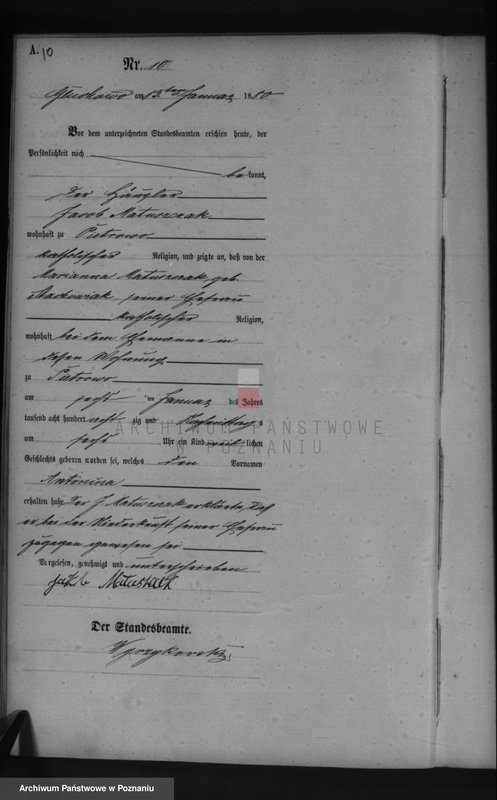 A. 10
Nr. 10
am 13ten Januar 1880
Vor dem unterzeichneten Standesbeamten erschien heute, der
Persönlichkeit nach
bekannt,
Der Häusler
Jacob Matuszczak
wohnhaft zu Pietrowo
katholischer Religion, und zeigte an, daß von der
Marianna Matuszczak geb.
seiner Ehefrau
katholischer Religion,
wohnhaft bei dem Ehemanne in
dessen Wohnung
zu Pietrowo
am ten Januar des Jahres
tausend acht hundert achtzig und Nachmittags
um Uhr ein Kind weiblichen
Geschlechts geboren worden sei, welches den Vornamen
Antonina
erhalten habe. Der J. Matuszczak erklärte, daß
er bei der Niederkunft seiner Ehefrau
zugegen gewesen sei
Vorgelesen, genehmigt und unterschrieben
Der Standesbeamte.
ARCHIWUM PAŃSTWOWE
W POZNANIU
Archiwum Państwowe w Poznaniu